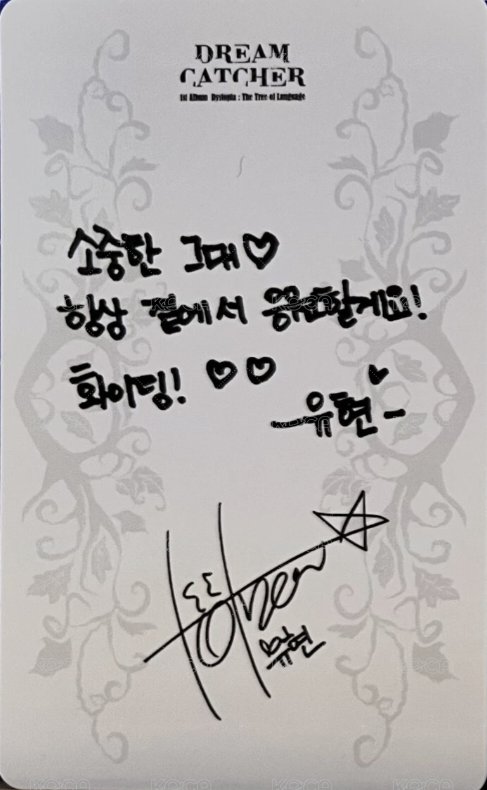 DREAM
CATCHER
1st Album Dystopia : The Tree of Language
소중한 그대♡
항상 곁에서 응원할게요!
화이팅! ♡♡
유현
유현